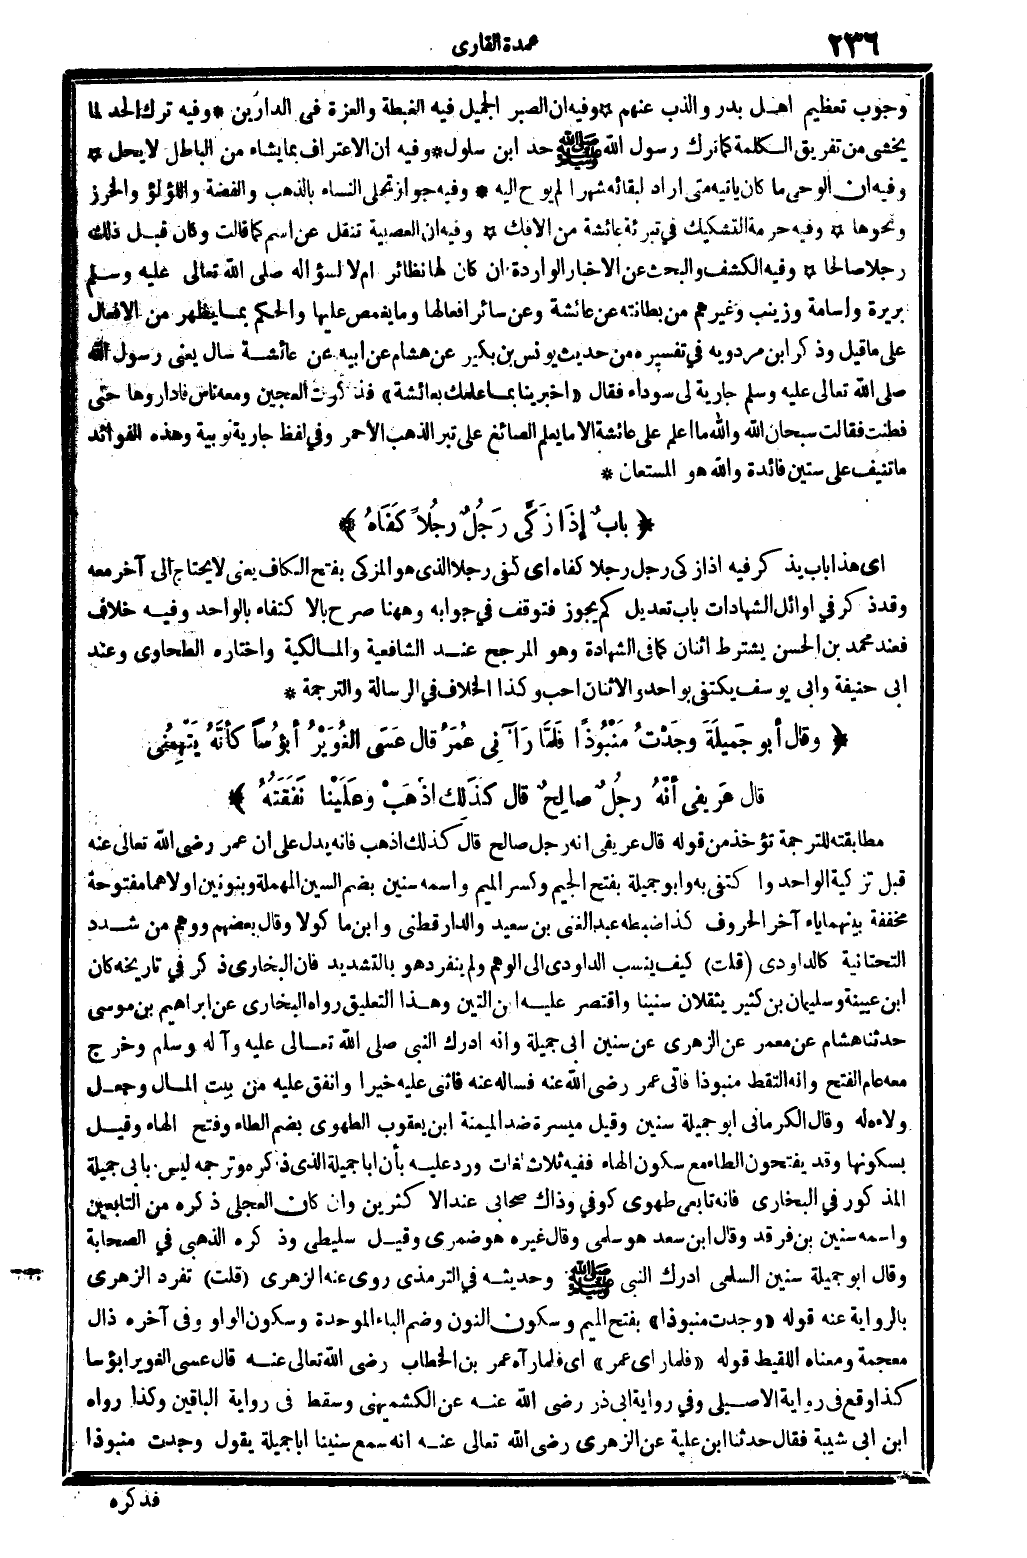 ٢٣٦
عمدة القارى
وجوب تعظيم اهل بدر والذب عنهم * وفيه ان الصبر الجميل فيه الغبطة والعزة فى الدارين * وفيه ترك الحد لما
يخشى من تفريق الكلمة كما ترك رسول الله ﷺ حد ابن سلول * وفيه ان الاعتراف بما يشاء من الباطل لا يحل *
وفيه ان الوحى ما كان ياتيه متى اراد لبقائه شهرا لم يوح اليه * وفيه جواز تحلى النساء بالذهب والفضة واللؤلؤ والخرز
ونحوها * وفيه حرمة التشكيك في تبرئة عائشة من الافك * وفيه ان العصبية تنقل عن اسم كما قالت وكان قبل ذلك
رجلا صالحا * وفيه الكشف والبحث عن الاخبار الواردة ان كان لها نظائر ام لا لسؤاله صلى الله تعالى عليه وسلم
بريرة واسامة وزينب وغيرهم من بطانته عن عائشة وعن سائر افعالها وما يغمص عليها والحكم بما يظهر من الافعال
على ماقيل وذكر ابن مردويه في تفسيره من حديث يونس بن بكير عن هشام عن ابيه عن عائشة سال يعنى رسول الله
صلى الله تعالى عليه وسلم جارية لى سوداء فقال «اخبرينا بما علمك بعائشة» فذكرت العجين ومعه ناس فاداروها حتى
فطنت فقالت سبحان الله والله ما اعلم على عائشة الا ما يعلم الصائغ على تبر الذهب الأحمر وفي لفظ جارية نوبية وهذه الفوائد
ما تنيف على ستين فائدة والله هو المستعان *
﴿ بابٌ إِذَا زَكَّى رَجُلٌ رجُلاً كَفَاهُ ﴾
اى هذا باب يذكر فيه اذا زكى رجل رجلا كفاه اى كفى رجلا الذى هو المزكى بفتح الكاف يعنى لا يحتاج الى آخر معه
وقد ذكر في اوائل الشهادات باب تعديل كم يجوز فتوقف في جوابه وههنا صرح بالاكتفاء بالواحد وفيه خلاف
فعند محمد بن الحسن يشترط اثنان كما فى الشهادة وهو المرجح عند الشافعية والمالكية واختاره الطحاوى وعند
ابى حنيفة وابى يوسف يكتفى بواحد والاثنان احب وكذا الخلاف في الرسالة والترجمة *
﴿ وقال أبو جَمِيلَةَ وجَدْتُ مَنْبُوذًا فَلَمَّا رَآنِى عُمَرُ قال عَسَى الغُوَيْرُ أبؤُسًا كأنَّهُ يَتَّهِمُنِى
قال عَرِيفى أنَّهُ رجُلٌ صالِحٌ قال كذَلِكَ اذْهَبْ وعَلَيْنا نَفَقَتُهُ ﴾
مطابقته للترجمة تؤخذ من قوله قال عريفى انه رجل صالح قال كذلك اذهب فانه يدل على ان عمر رضى الله تعالى عنه
قبل تزكية الواحد واكتفى به وابو جميلة بفتح الجيم وكسر الميم واسمه سنين بضم السين المهملة وبنونين اولاهما مفتوحة
مخففة بينهما ياء آخر الحروف كذا ضبطه عبد الغنى بن سعيد والدارقطنى وابن ماكولا وقال بعضهم ووهم من شدد
التحتانية كالداودى (قلت) كيف ينسب الداودى الى الوهم ولم ينفرد هو بالتشديد فان البخارى ذكر في تاريخه كان
ابن عيينة وسليمان بن كثير يثقلان سنينا واقتصر عليه ابن التين وهذا التعليق رواه البخارى عن ابراهيم بن موسى
حدثنا هشام عن معمر عن الزهرى عن سنين ابى جميلة وانه ادرك النبى صلى الله تعالى عليه وآله وسلم وخرج
معه عام الفتح وانه التقط منبوذا فاتى عمر رضى الله عنه فساله عنه فاثنى عليه خيرا وانفق عليه من بيت المال وجعل
ولاءه له وقال الكرمانى ابو جميلة سنين وقيل ميسرة ضد الميمنة ابن يعقوب الطهوى بضم الطاء وفتح الهاء وقيل
بسكونها وقد يفتحون الطاء مع سكون الهاء ففيه ثلاث لغات ورد عليه بأن ابا جميلة الذى ذكره وترجمه ليس بابى جميلة
المذكور في البخارى فانه تابعى طهوى كوفي وذاك صحابى عند الاكثرين وان كان العجلى ذكره من التابعين
واسمه سنين بن فرقد وقال ابن سعد هو سلمى وقال غيره هو ضمرى وقيل سليطى وذكره الذهبى في الصحابة
وقال ابو جميلة سنين السلمى ادرك النبى ﷺ وحديثه في الترمذى روى عنه الزهرى (قلت) تفرد الزهرى
بالرواية عنه قوله «وجدت منبوذا» بفتح الميم وسكون النون وضم الباء الموحدة وسكون الواو وفى آخره ذال
معجمة ومعناه اللقيط قوله «فلما راى عمر» اى فلما رآه عمر بن الخطاب رضى الله تعالى عنه قال عسى الغوير ابؤسا
كذا وقع فى رواية الاصيلى وفي رواية ابى ذر رضى الله عنه عن الكشميهنى وسقط فى رواية الباقين وكذا رواه
ابن ابى شيبة فقال حدثنا ابن علية عن الزهرى رضى الله تعالى عنه انه سمع سنينا ابا جميلة يقول وجدت منبوذا
فذكره